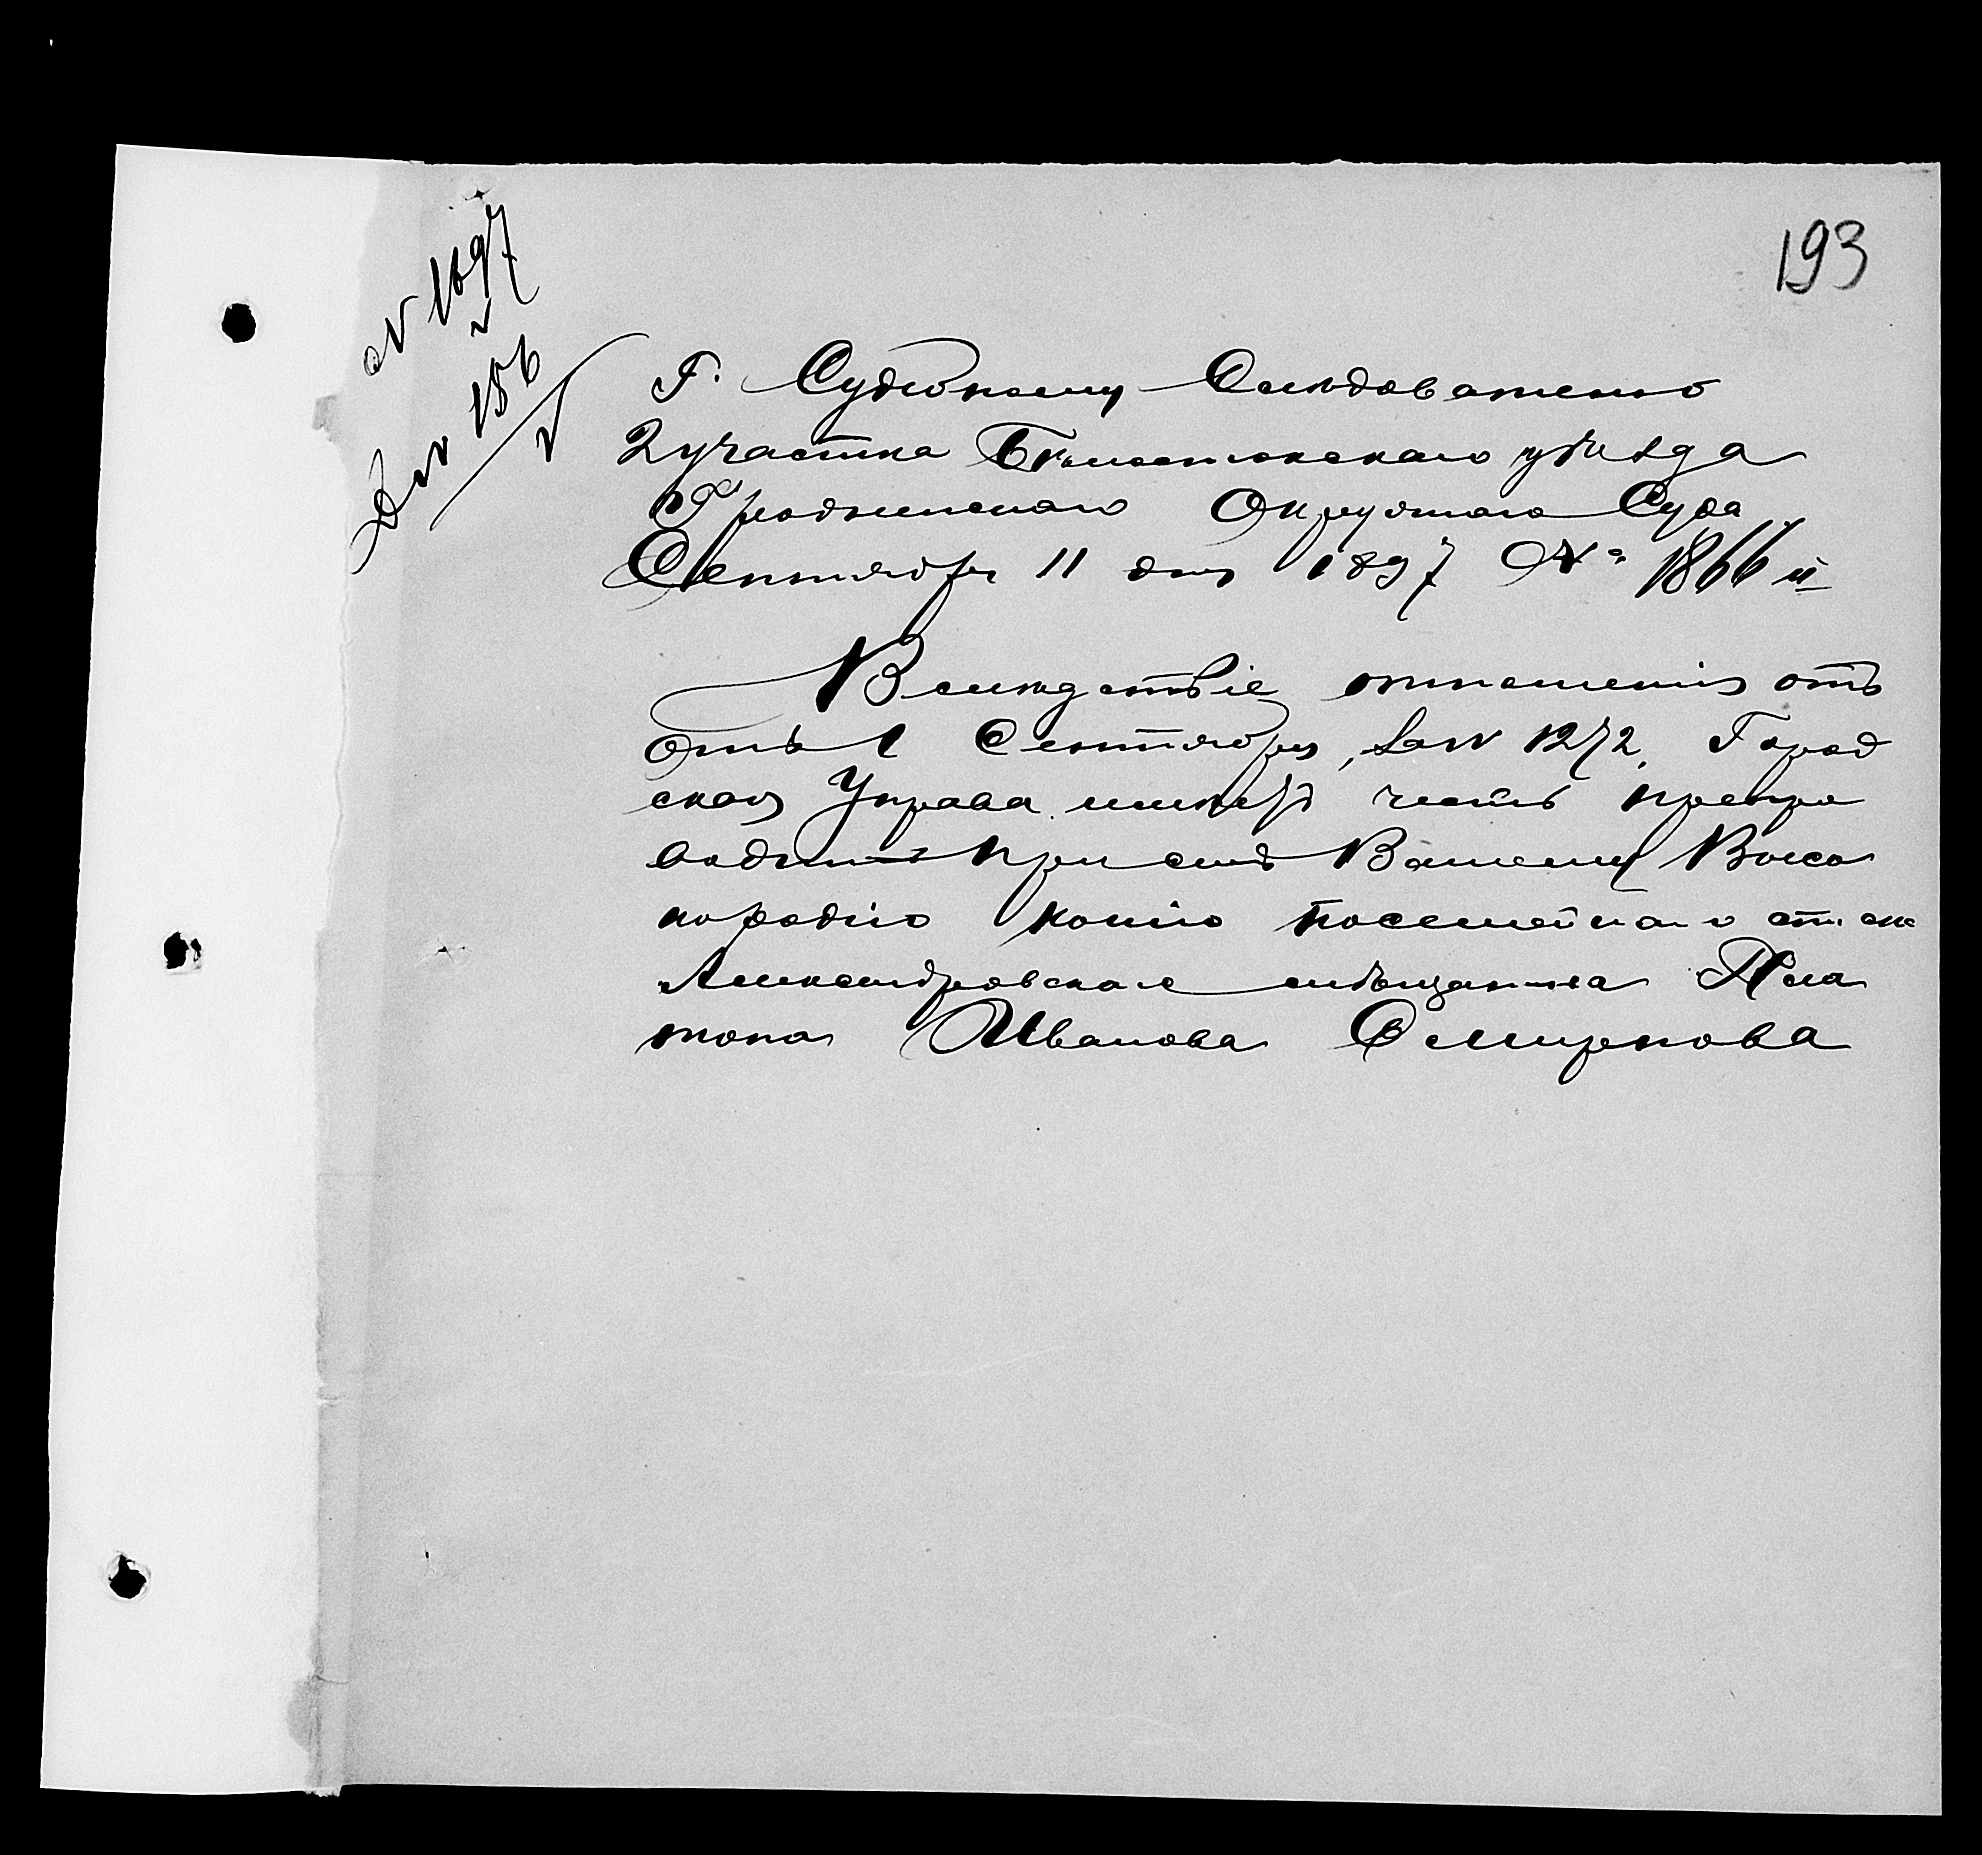 193
№ 1697
Дѣло 156
Г. Судебному Слѣдователю
2 участка Бѣлостокскаго уѣзда
Гродненскаго Окружнаго Суда
Сентября 11 дня 1897 № 1866 й
Вслѣдствіе отношенія отъ
отъ 1 Сентября, за № 1272, Город
ская Управа имѣетъ честь препро
водить при семъ Вашему Высо
кородію копію посемейнаго списка
Александровскаго мѣщанина Пла
тона Иванова Смирнова